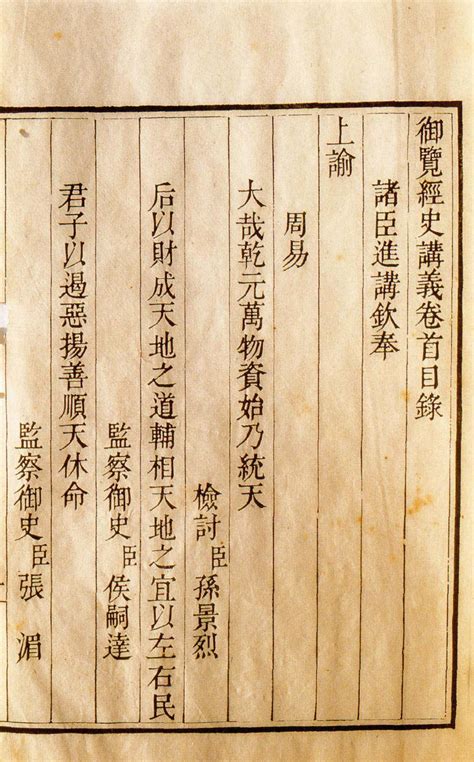 御覽經史講義卷首目錄
諸臣進講欽奉
上諭
周易
大哉乾元萬物資始乃統天
檢討臣孫景烈
后以財成天地之道輔相天地之宜以左右民
監察御史臣侯嗣達
君子以遏惡揚善順天休命
監察御史臣張湄